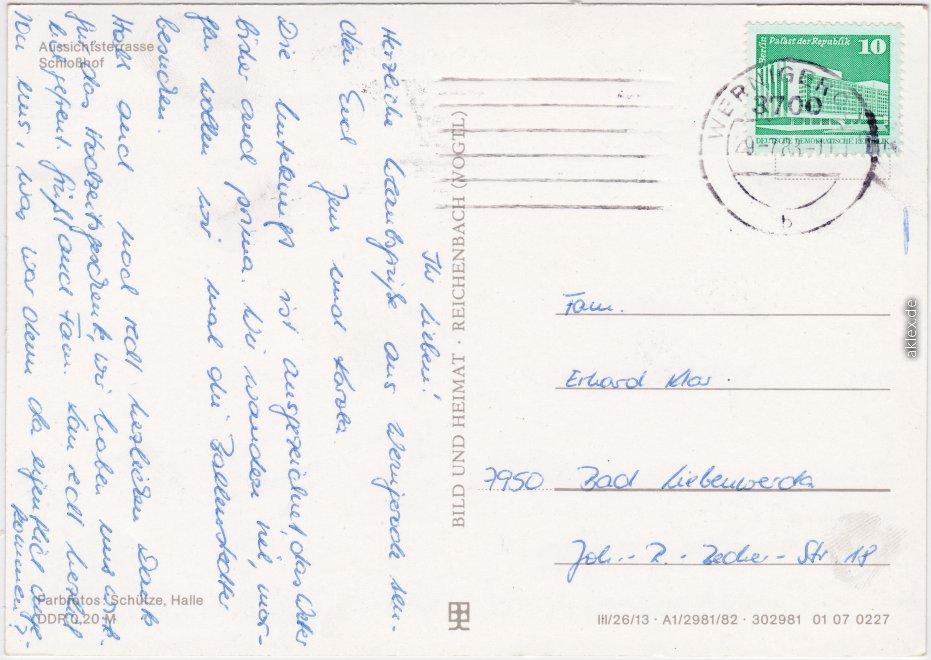 Aussichtsterrasse
Schloßhof
Ihr Lieben!
Herzliche Urlaubsgrüße aus Wernigerode sen-
den Euch Jens und Karola.
Die Unterkunft ist ausgezeichnet, das Wetter
bisher auch prima. Wir wandern viel, mor-
gen wollen wir mal die Ballenstedter
besuchen.
Habt auch noch recht herzlichen Dank
für das Hochzeitsgeschenk, wir haben uns
gefreut. Grüßt auch Fam. recht herzlich
von uns, was war denn da eigentlich
kommen?
Farbfotos: Schütze, Halle
DDR 0,20 M
BILD UND HEIMAT · REICHENBACH (VOGTL)
Berlin Palast der Republik 10
DEUTSCHE DEMOKRATISCHE REPUBLIK
WERNIGERODE
3700
b
Fam.
Erhard Klas
7950 Bad Liebenwerda
Joh.-R.-Becher-Str. 18
III/26/13 · A1/2981/82 · 302981 01 07 0227
aklex.de